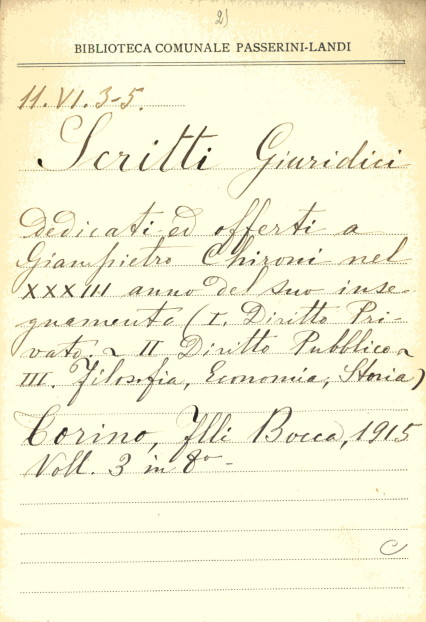 2)
BIBLIOTECA COMUNALE PASSERINI-LANDI
11.VI.3-5.
Scritti Giuridici
dedicati ed offerti a
Giampietro Chironi nel
XXXIII anno del suo inse-
gnamento (I. Diritto Pri-
vato. ~ II Diritto Pubblico ~
III. Filosofia, Economia, Storia)
Torino, Flli Bocca, 1915
Voll. 3 in 8º -
C